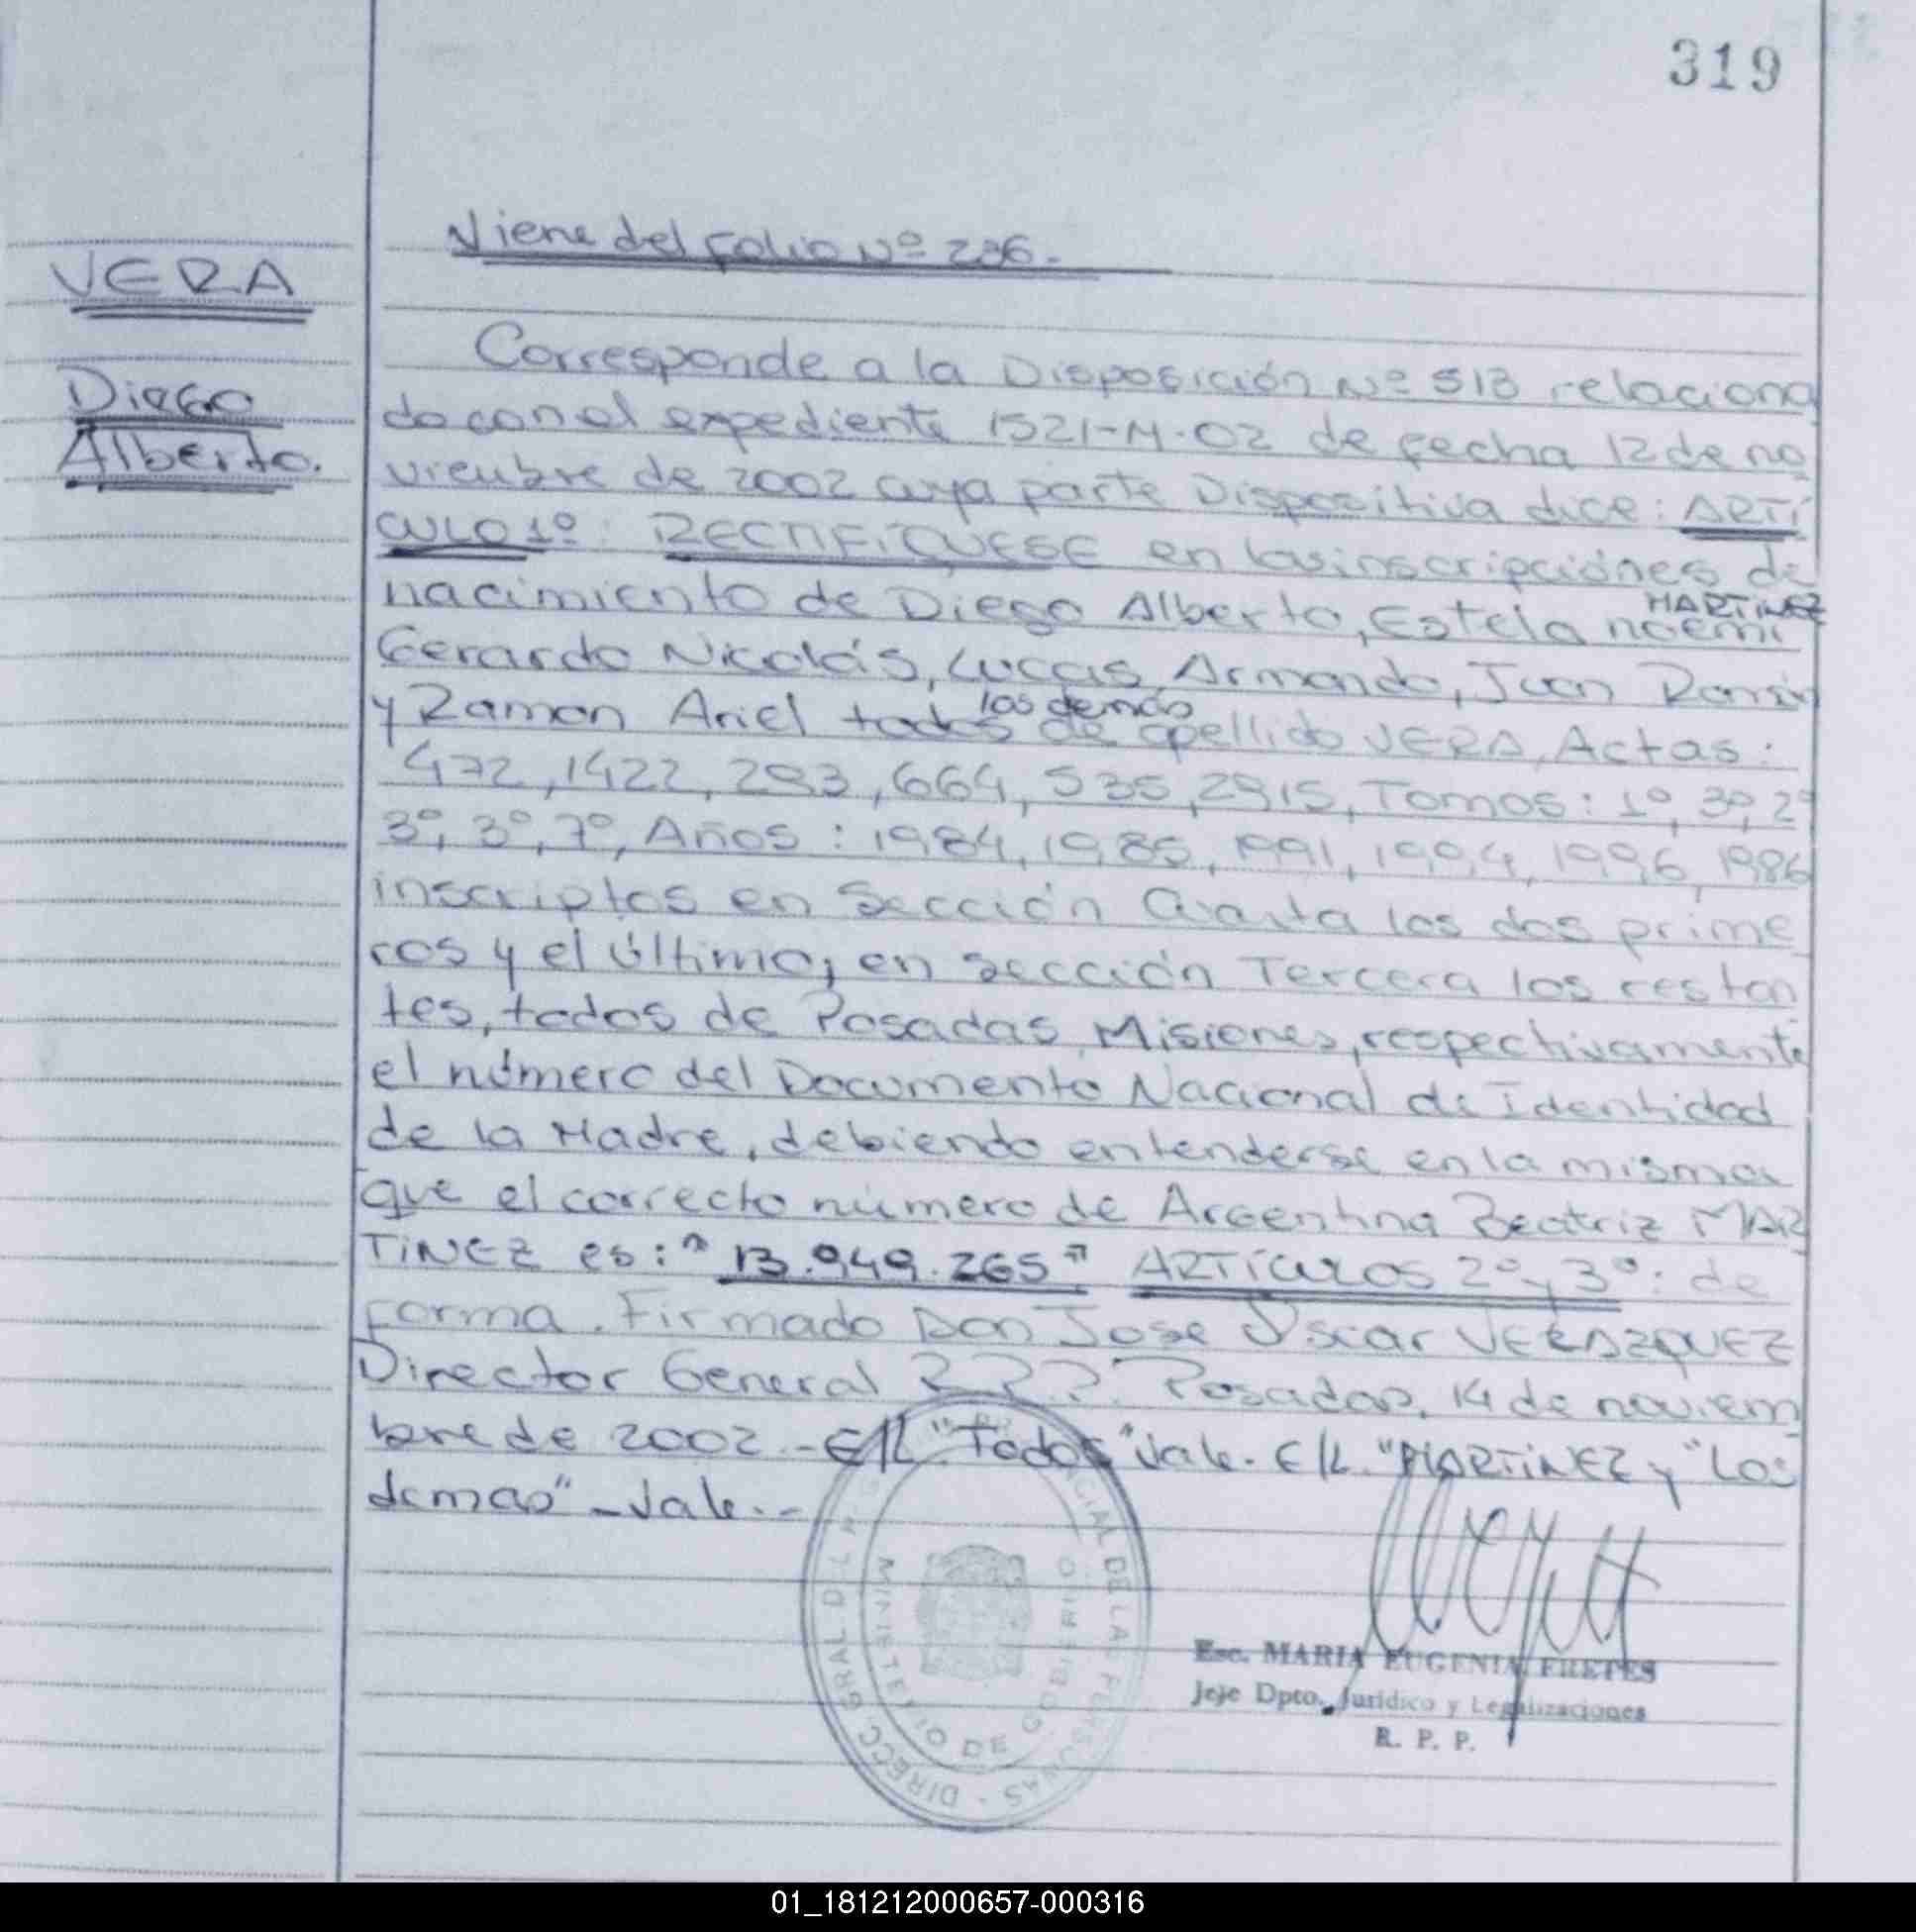 319
Viene del Folio Nº 236.-
VERA
Diego
Alberto.
Corresponde a la Disposición Nº 513 relaciona
do con el expediente 1521-M-02 de fecha 12 de no
viembre de 2002 cuya parte Dispositiva dice: ARTÍ
CULO 1º: RECTIFÍQUESE en las inscripciónes de
nacimiento de Diego Alberto, Estela noemi MARTINEZ
Gerardo Nicolás, Lucas Armando, Juan Ramón
y Ramon Ariel todos los demás de apellido VERA, Actas:
472, 1422, 293, 664, 535, 2915, Tomos: 1º, 3º, 2º
3º, 3º, 7º, Años: 1984, 1985, 1991, 1994, 1996, 1986
inscriptos en Sección Cuarta los dos prime
ros y el último, en Sección Tercera los restan
tes, todos de Posadas, Misiones, respectivamente
el número del Documento Nacional de Identidad
de la Madre, debiendo entenderse en la misma
que el correcto número de Argentina Beatriz MAR
TINEZ es: "13.949.265" ARTÍCULOS 2º y 3º: de
forma. Firmado Don Jose Oscar VELAZQUEZ
Director General R.P.P. Posadas, 14 de noviem
bre de 2002.- E/L "Todos" Vale. E/L. "MARTINEZ y "Los
demas" - Vale.-
DIRECC. GRAL DEL PROVINCIAL DE LAS PERSONAS
MINISTERIO DE GOBIERNO
Esc. MARIA EUGENIA FRETES
Jefe Dpto. Jurídico y Legalizaciones
R. P. P.
01_181212000657-000316